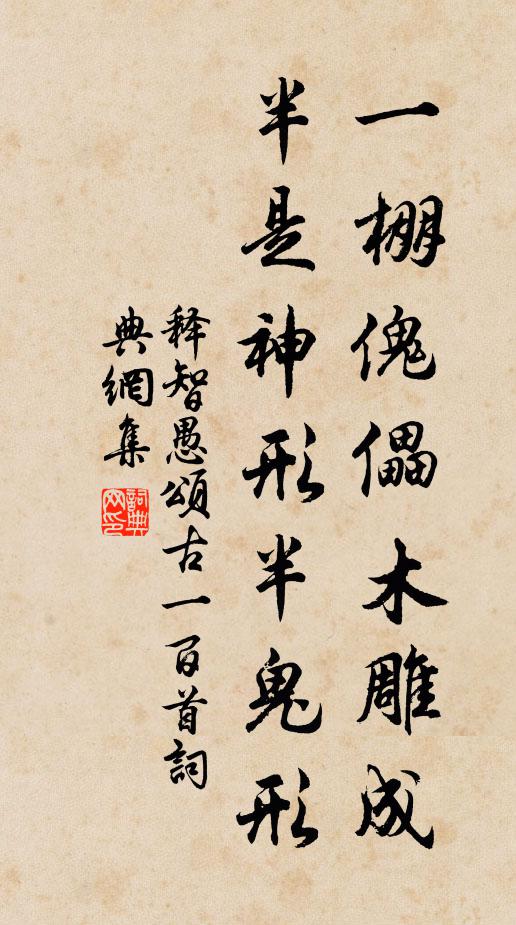 一棚傀儡木雕成
半是神形半鬼形
释智愚颂古一百首詞
典網集
詞典網印